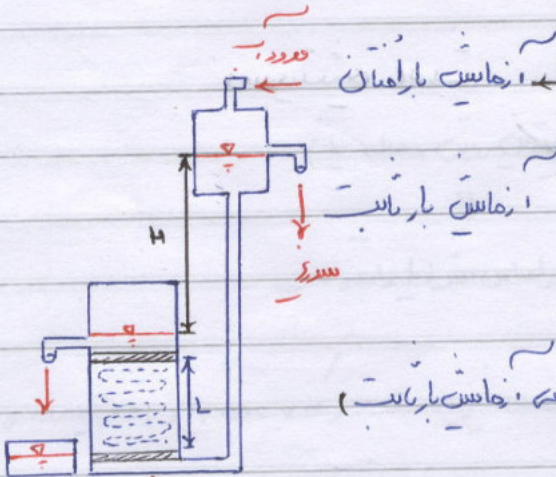 ورود آب
آزمایش بار افتان
آزمایش بار ثابت
سرریز
H
L
آزمایش بار ثابت)